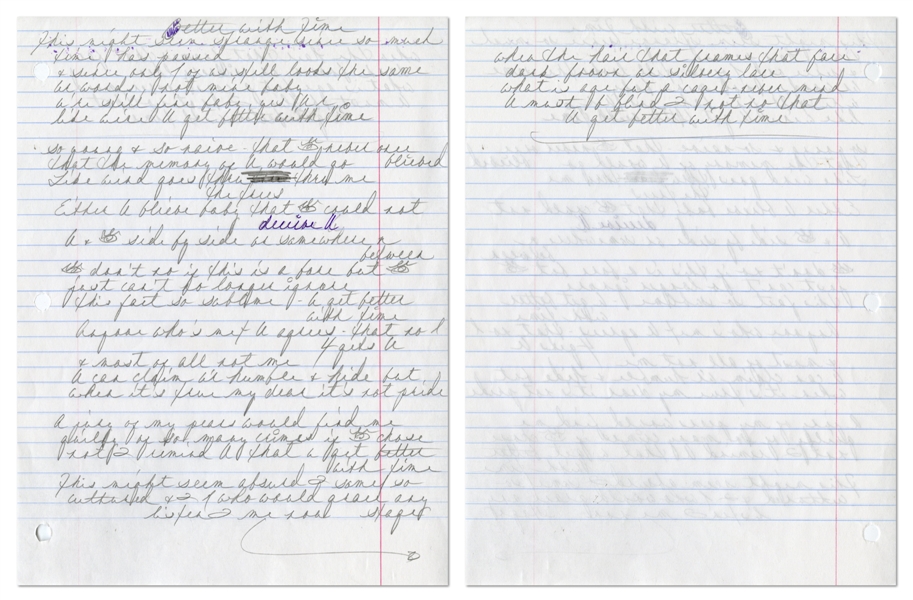 Better with Time
This might seem strange since so much
time has passed
& since only 1 of us still looks the same
Ur words, not mine baby
U're still fine baby, yes U r
like wine U get better with time
so young & so naive - that 👁 never once
that the memory of U would go
blieved
Like wind goes thru thru me
the trees
Either U blieve baby that 👁 could not
deceive U
U & 👁 side by side or somewhere n
between
👁 don't no if this is a fase but 👁
just can't no longer ignore
this fact so sublime - U get better
with time
Anyone who's met U agrees - that no 1
4gets U
& most of all not me
U can claim 2 humble & hide but
when it's true my dear it's not pride
A jury of my peers would find me
guilty of so many crimes if 👁 chose
not 2 remind U that U get better
with time
This might seem absurd 2 some / so
& 2 1 who would grace any
listen 2 me now stages
when the hair that frames that face
dark brown or silvery lace
what is age but a cage - never mind
U must b blind 2 not no that
U get better with time